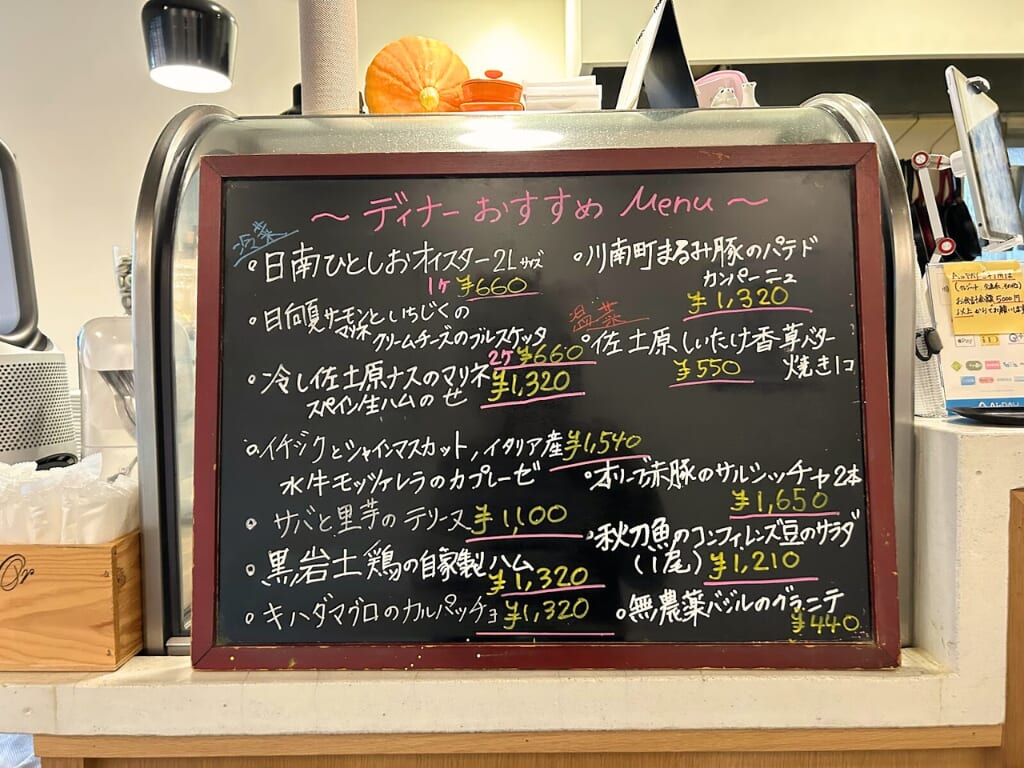 ~ディナーおすすめMenu~
冷菜
・日南ひとしおオイスター2Lサイズ
1ケ ¥660
・日向夏サーモンといちじくの
マリネ クリームチーズのブルスケッタ
2ケ ¥660
・冷し佐土原ナスのマリネ
スペイン生ハムのせ ¥1,320
・イチジクとシャインマスカット,イタリア産
水牛モッツァレラのカプレーゼ ¥1,540
・サバと里芋のテリーヌ ¥1,100
・黒岩土鶏の自家製ハム
¥1,320
・キハダマグロのカルパッチョ ¥1,320
・川南町まるみ豚のパテド
カンパーニュ
¥1,320
温菜
・佐土原しいたけ香草バター
焼き1コ
¥550
・オリーブ赤豚のサルシッチャ2本
¥1,650
・秋刀魚のコンフィ,レンズ豆のサラダ
(1尾) ¥1,210
・無農薬バジルのグラニテ
¥440
お会計金額5000円
以上からでお願いします